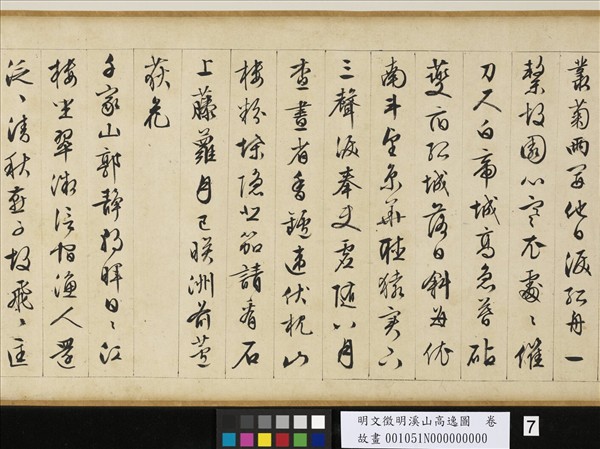 叢菊兩開他日淚孤舟一
繫故園心寒衣處〻催
刀尺白帝城高急暮砧
夔府孤城落日斜每依
南斗望京華聽猿實下
三聲淚奉使虛隨八月
查畫省香鑪違伏枕山
樓粉堞隱悲笳請看石
上藤蘿月已映洲前蘆
荻花
千家山郭靜朝暉日〻江
樓坐翠微信宿漁人還
泛〻清秋燕子故飛〻匡
明文徵明溪山高逸圖 卷
故畫 001051N000000000
7